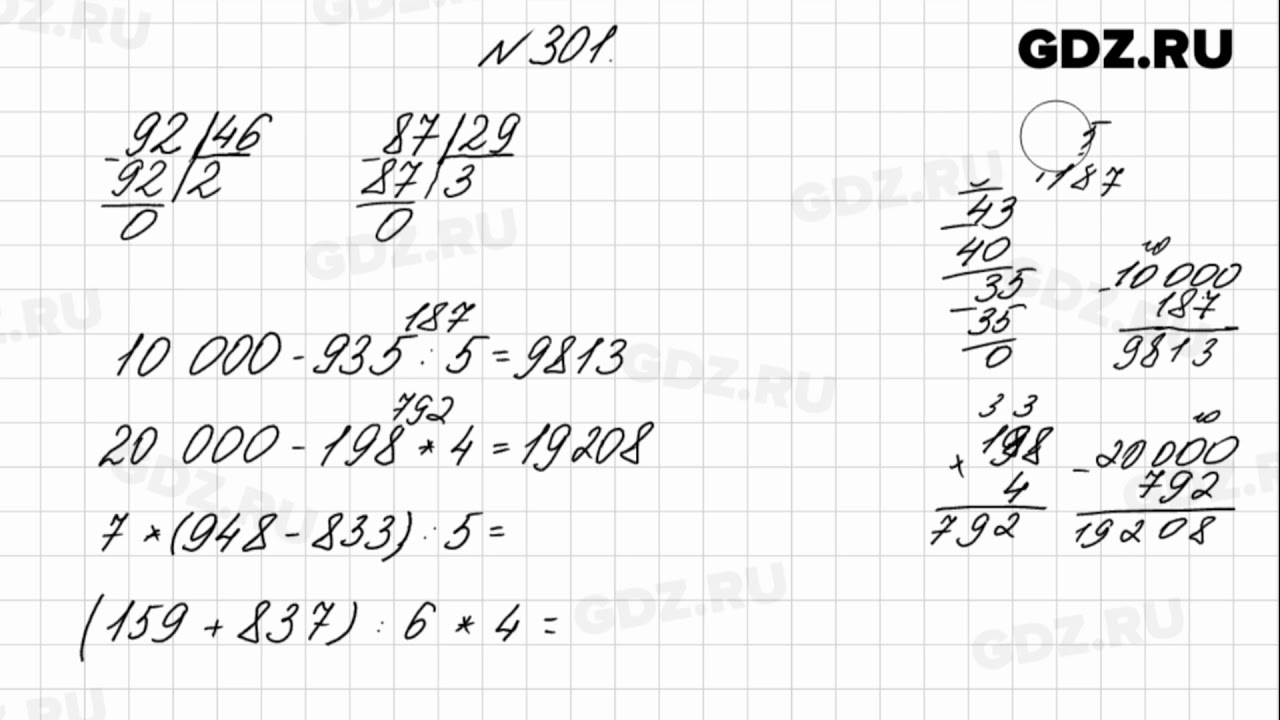 № 301.
GDZ.RU
- 92 | 46
92 | 2
0
- 87 | 29
87 | 3
0
187
10 000 - 935 : 5 = 9813
792
20 000 - 198 * 4 = 19208
7 * (948 - 833) : 5 =
(159 + 837) : 6 * 4 =
5
187
43
40
- 35
35
0
10
- 10 000
187
9813
3 3
× 198
4
792
10
- 20 000
792
19208